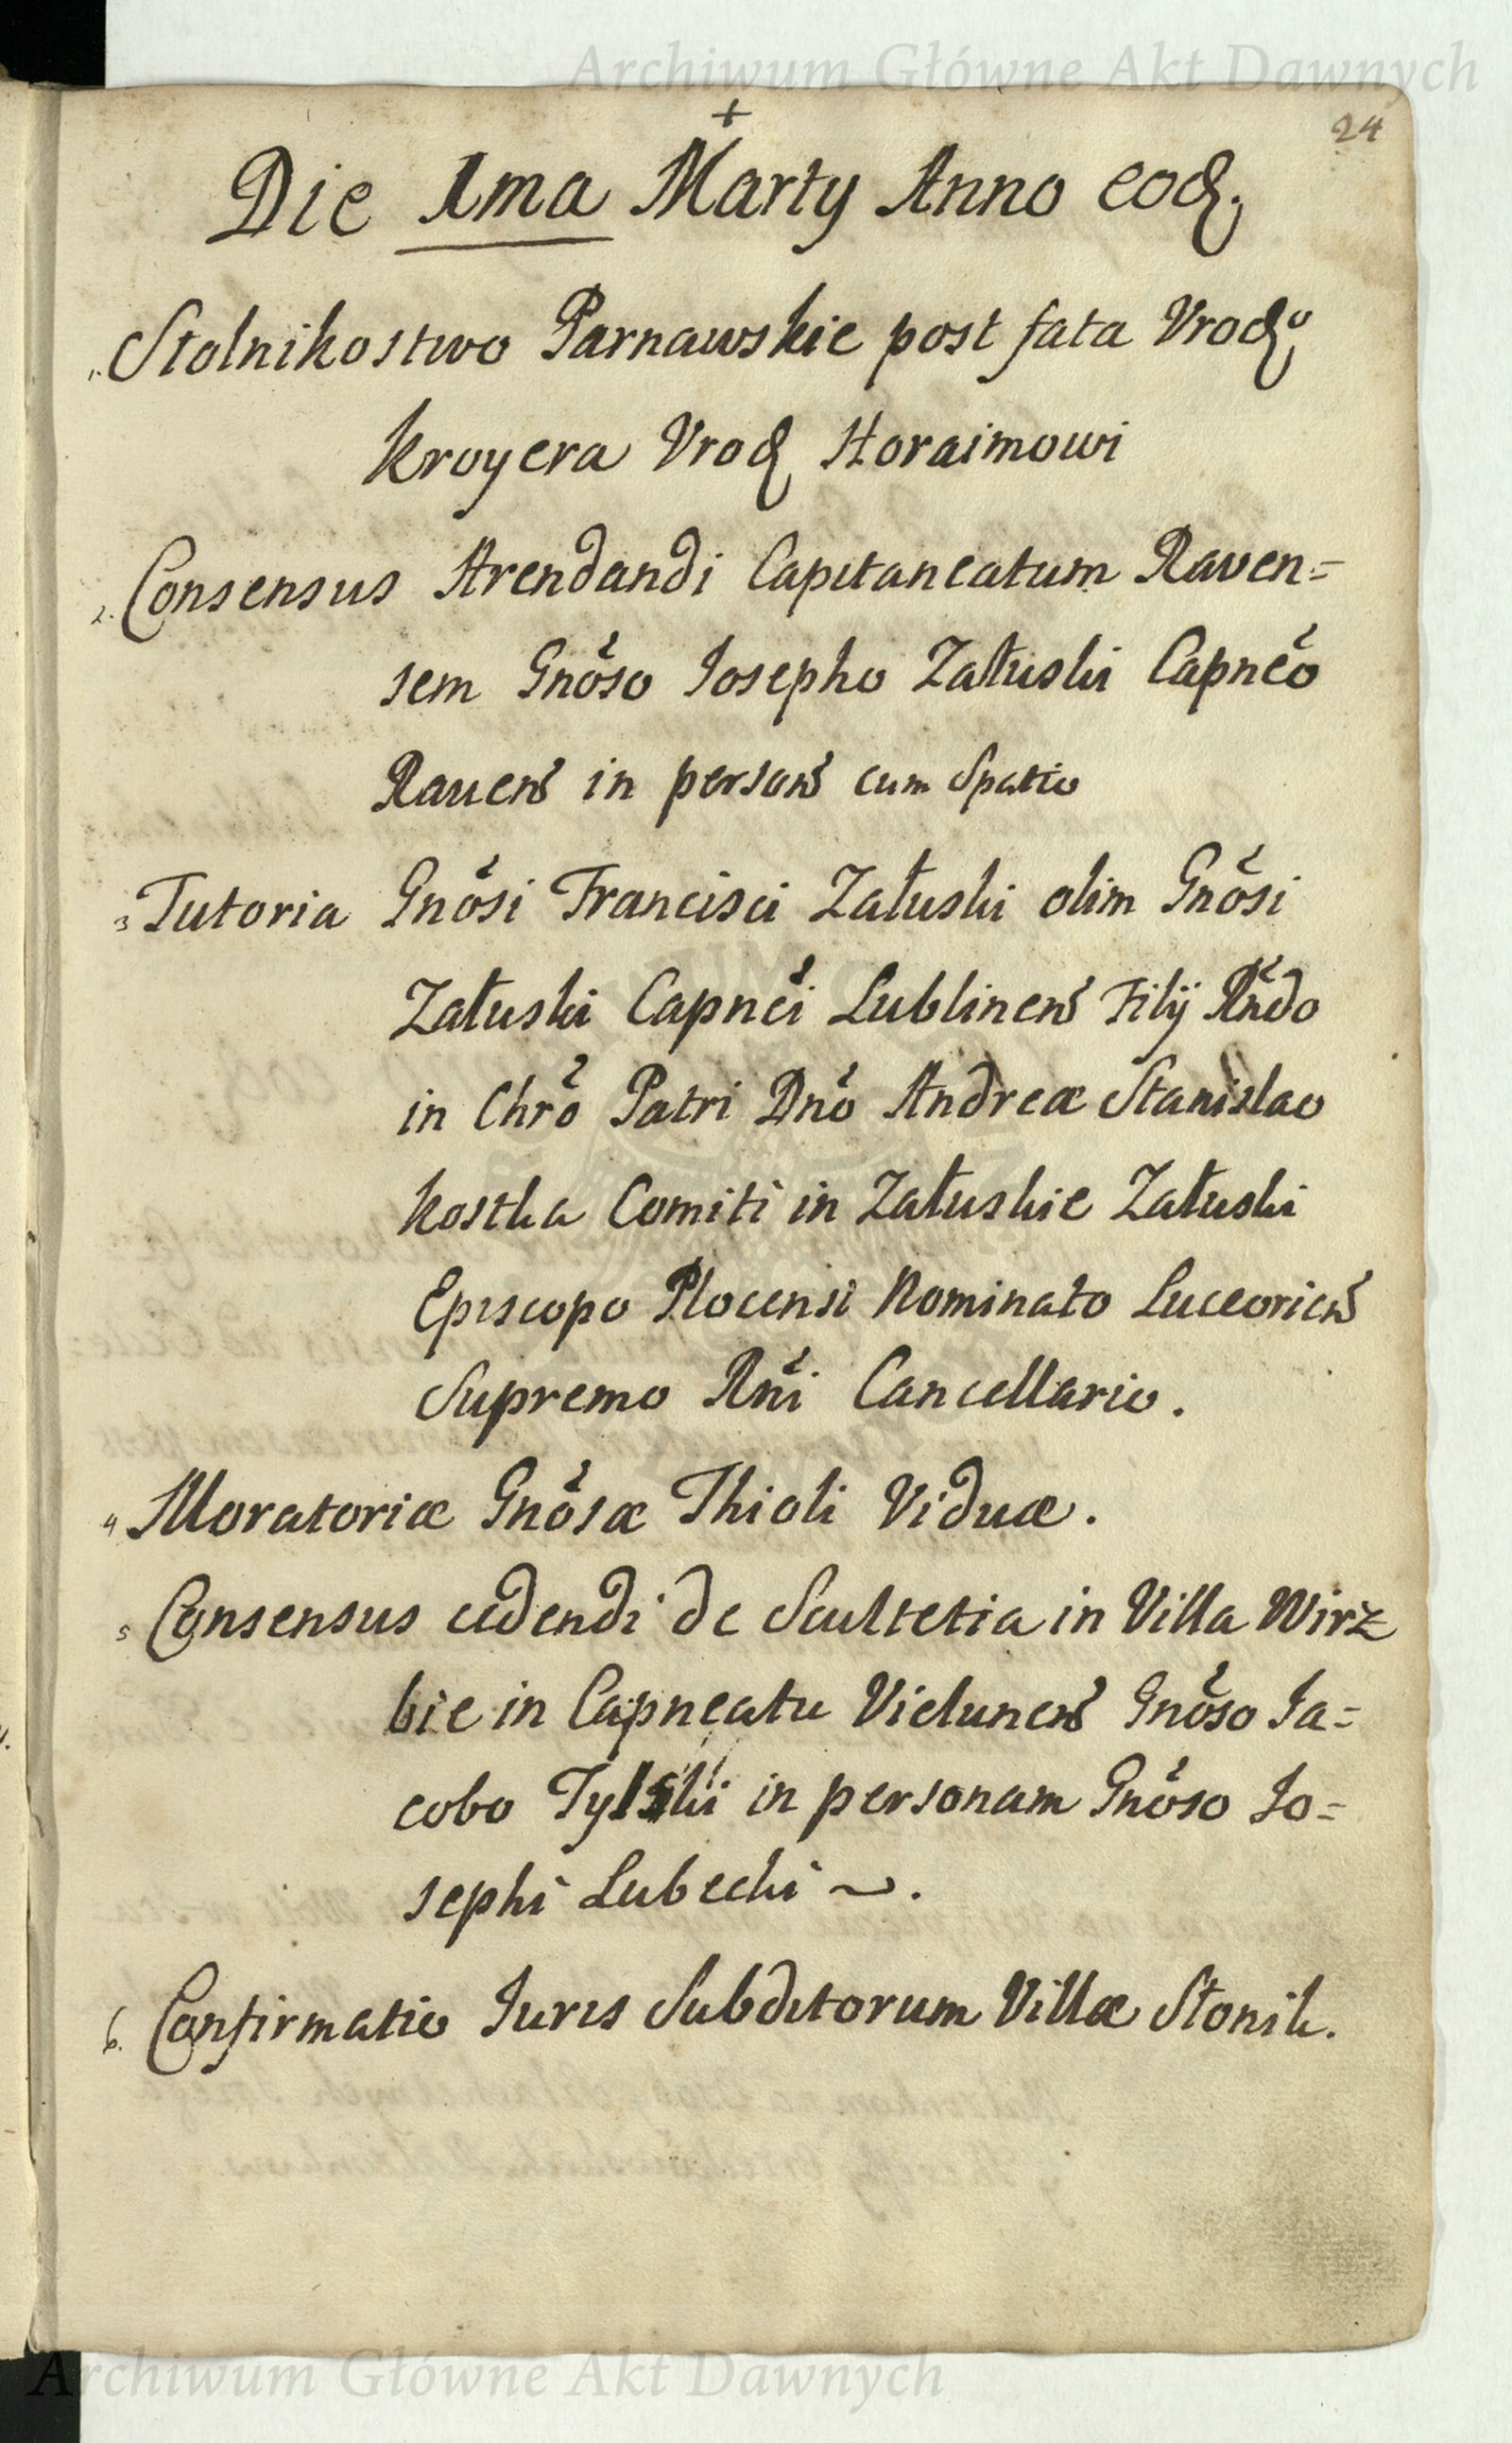 Archiwum Główne Akt Dawnych
24
+
Die 1ma Marty Anno eod.
1. Stolnikostwo Parnawskie post fata Urod⁰
Kroyera Urod Horaimowi
2. Consensus Arendandi Capitaneatum Raven=
sem Gnőso Josepho Załuski Capnéo
Raven̄ in person̄ cum Spatio
3 Tutoria Gnősi Francisci Załuski olim Gnősi
Załuski Capnéi Lublinen̄ Filij Rńdo
in Chrő Patri Dnő Andreæ Stanislao
Kostka Comiti in Załuskie Załuski
Episcopo Plocensi Nominato Luceorien̄
Supremo Rńi Cancellario.
4 Moratoriæ Gnősæ Thioli Viduæ.
5 Consensus cedendi de Scultetia in Villa Wirz
bie in Capneatu Vielunen̄ Gnőso Ja=
cobo Tylski in personam Gnőso Jo=
sephi Lubecki ~.
6. Confirmatio Juris Subditorum Villæ Stonik.
Archiwum Główne Akt Dawnych